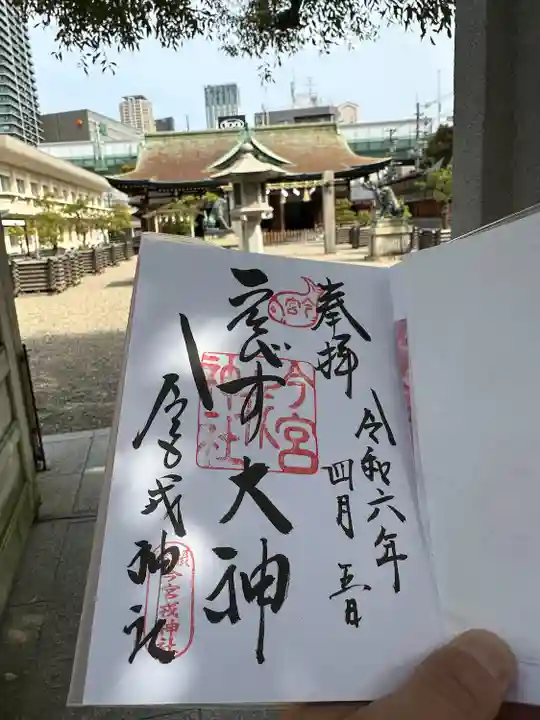 奉拝
令和六年
四月五日
今宮
ゑびす大神
今宮
戎
神社
廣田神社
今宮戎神社